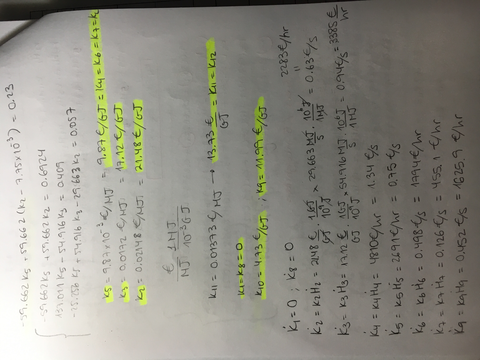 -39.662 k5 + 59.662 (k2 - 7.75×10⁻³) = 0.23
-39.662 k5 + 59.662 k2 = 0.6924
137.019 k5 - 54.916 k3 = 0.409
-21.256 k5 + 54.916 k3 - 29.663 k2 = 0.057
k5 = 9.87×10⁻³ €/MJ = 9.87 €/GJ = k4 = k6 = k7 = k2
k3 = 0.0172 €/MJ = 17.12 €/GJ
k2 = 0.02148 €/MJ = 21.48 €/GJ
€ / MJ · 1 MJ / 10⁻³ GJ
k11 = 0.01373 €/MJ → 13.73 €/GJ = k11 = k12
k1 = k8 = 0
k10 = 4.73 €/GJ ; k9 = 11.59 €/GJ
2283 €/hr
K̇1 = 0 ; K̇8 = 0
K̇2 = k2 Ḣ2 = 21.48 €/GJ · 1GJ/10⁹J × 29.663 MJ/s · 10⁶J/1MJ = 0.63 €/s
K̇3 = k3 Ḣ3 = 17.12 €/GJ · 1GJ/10⁹J × 54.916 MJ/s · 10⁶J/1MJ = 0.94 €/s = 3385 €/hr
K̇4 = k4 Ḣ4 = 4810 €/hr = 1.34 €/s
K̇5 = k5 Ḣ5 = 2691 €/hr = 0.75 €/s
K̇6 = k6 Ḣ6 = 0.498 €/s = 1794 €/hr
K̇7 = k7 Ḣ7 = 0.126 €/s = 455.1 €/hr
K̇9 = k9 Ḣ9 = 0.452 €/s = 1625.9 €/hr